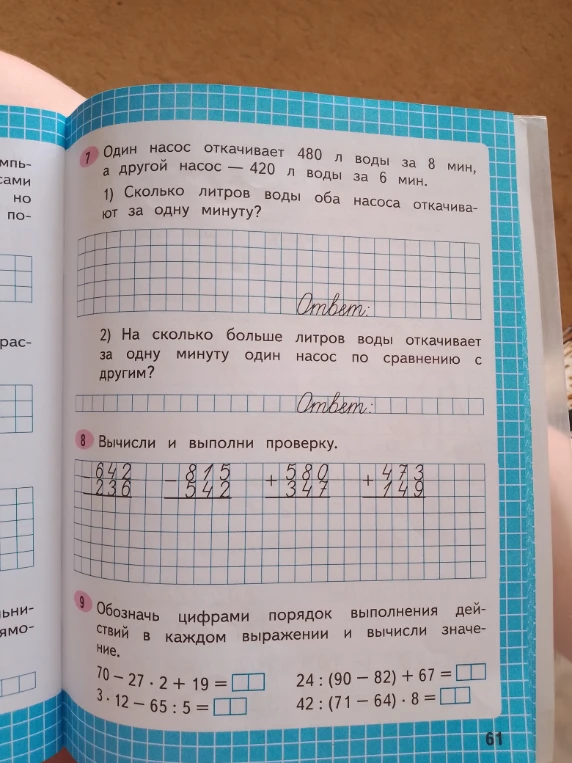 мпь-
сами
но
по-
рас-
ьни-
ямо-
7 Один насос откачивает 480 л воды за 8 мин,
а другой насос — 420 л воды за 6 мин.
1) Сколько литров воды оба насоса откачива-
ют за одну минуту?
Ответ:
2) На сколько больше литров воды откачивает
за одну минуту один насос по сравнению с
другим?
Ответ:
8 Вычисли и выполни проверку.
642 − 815 + 580 + 473
236 542 347 149
9 Обозначь цифрами порядок выполнения дей-
ствий в каждом выражении и вычисли значе-
ние.
70 − 27 · 2 + 19 = 24 : (90 − 82) + 67 =
3 · 12 − 65 : 5 = 42 : (71 − 64) · 8 =
61